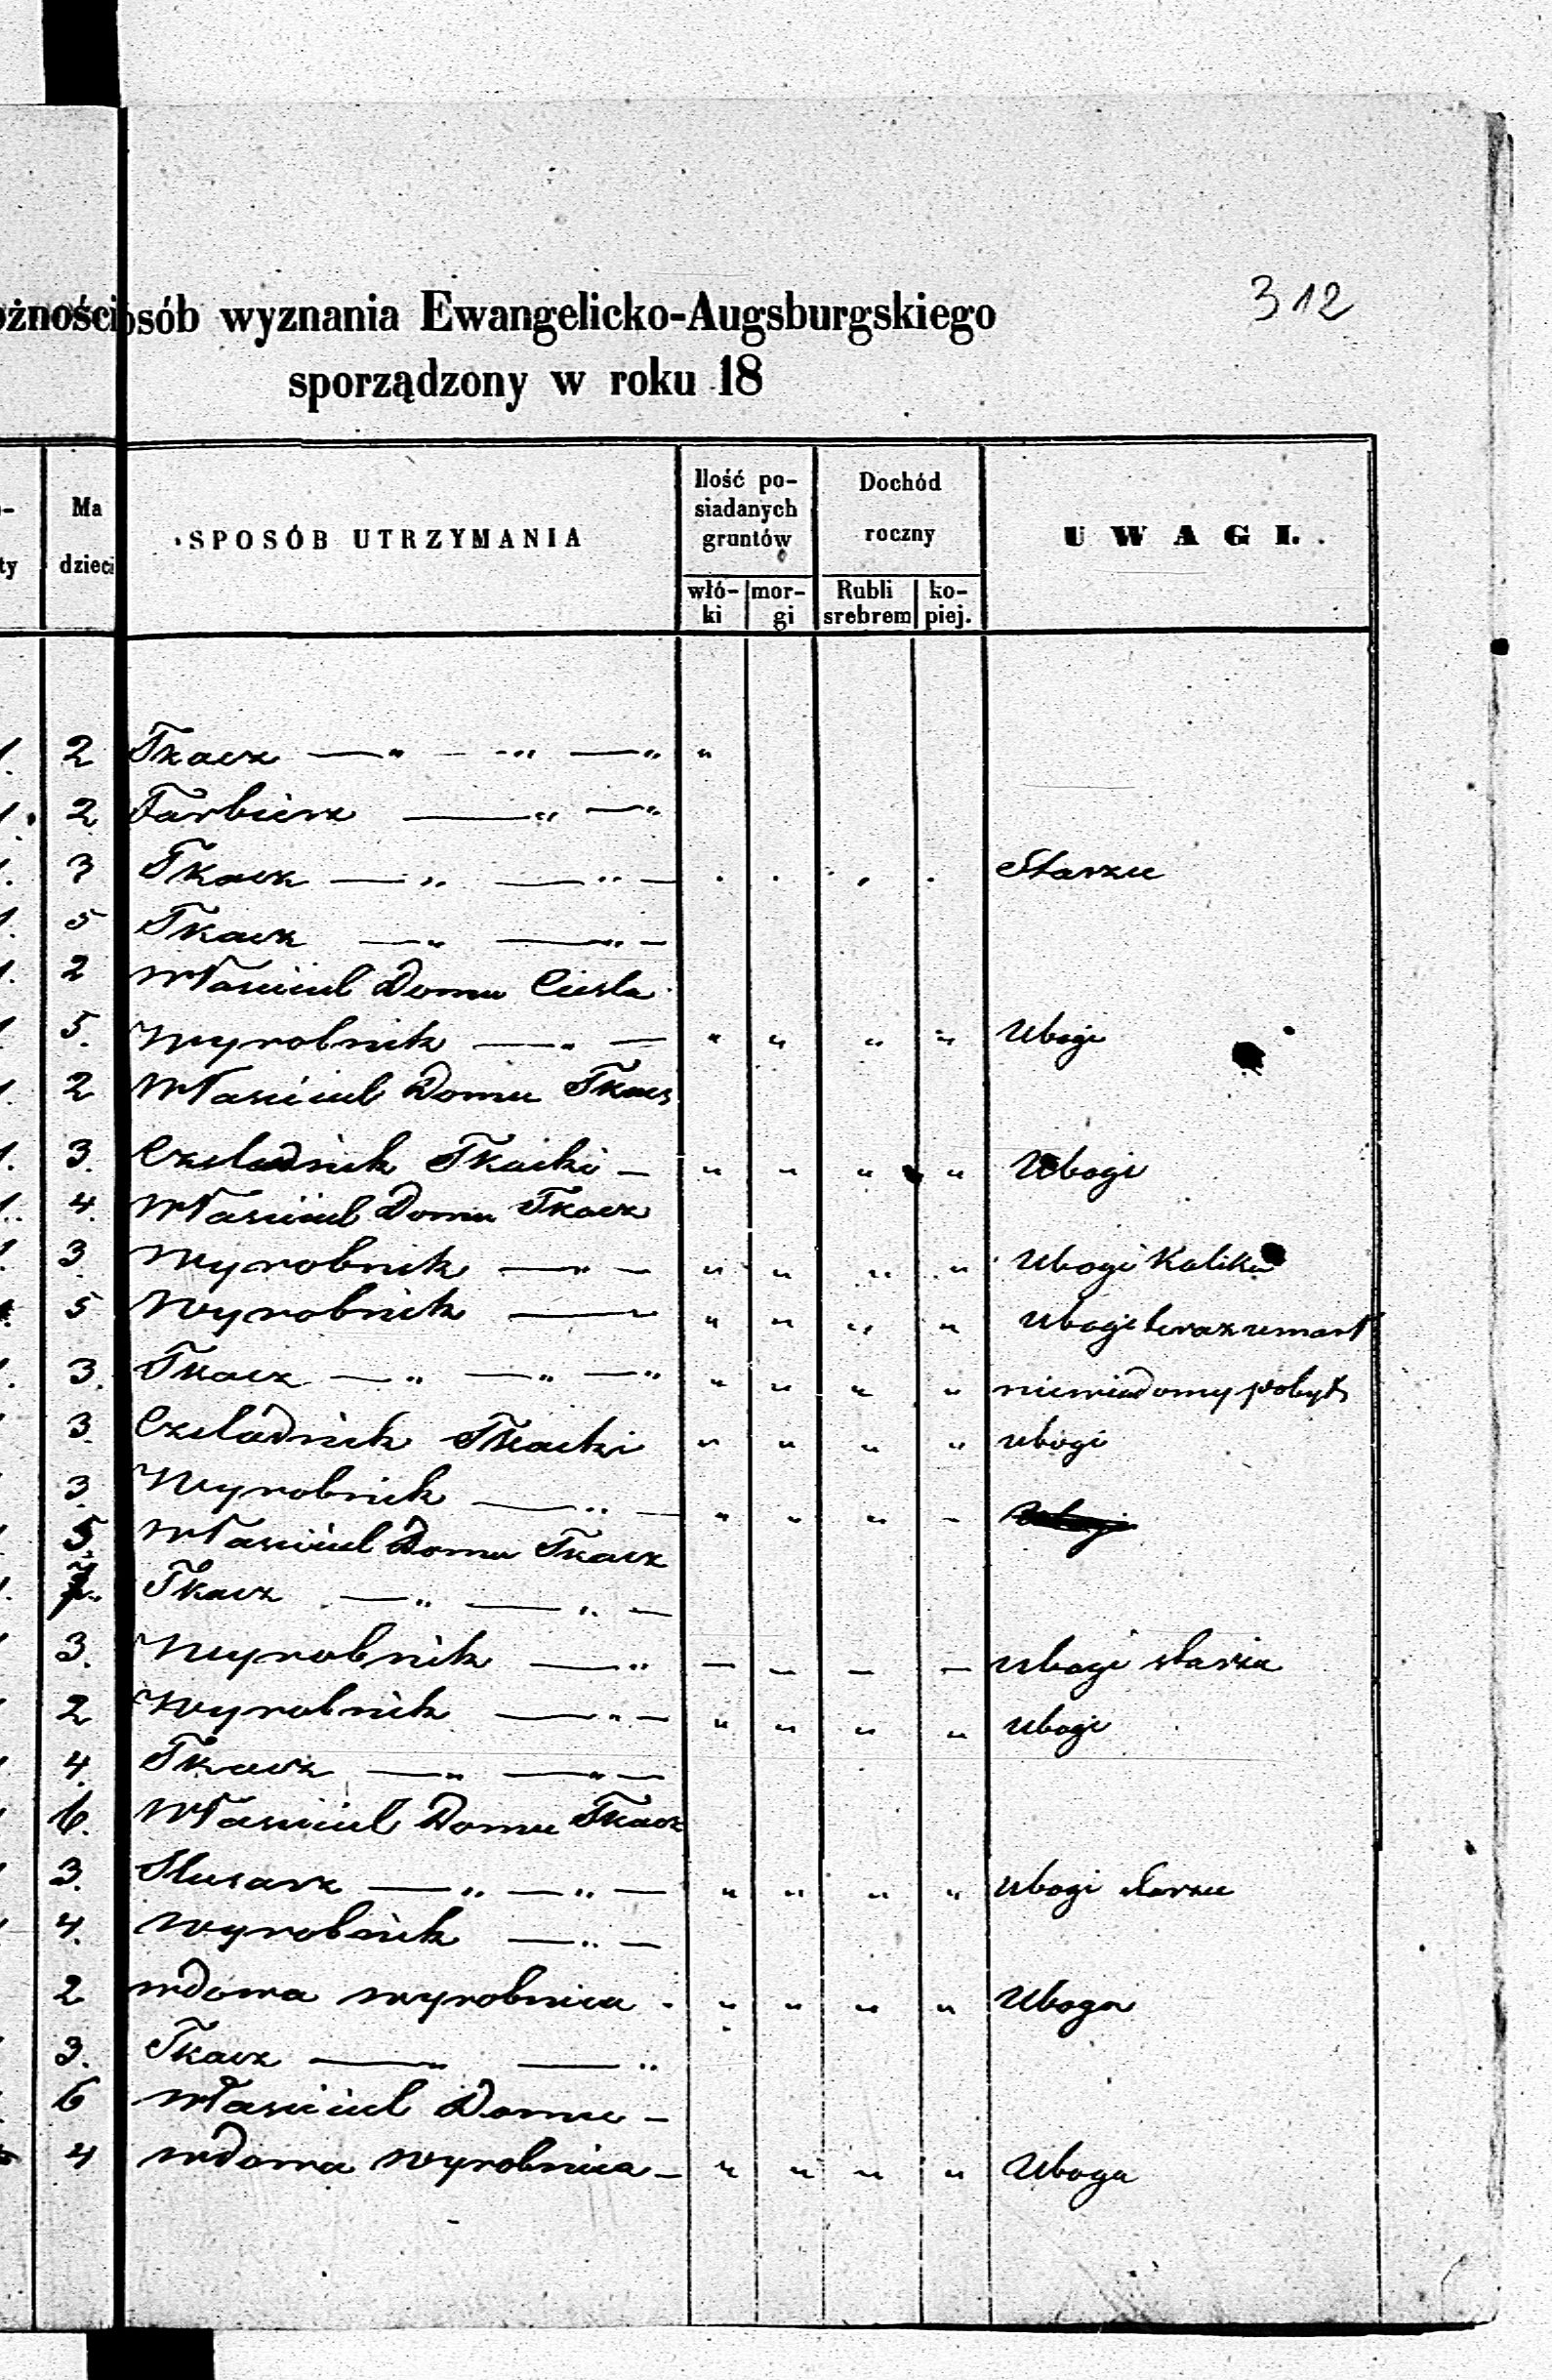 312
ożności osób wyznania Ewangelicko-Augsburgskiego
sporządzony w roku 18
ty Ma dzieci SPOSÓB UTRZYMANIA Ilość po- siadanych gruntów Dochód roczny UWAGI.
włó- ki mor- gi Rubli srebrem ko- piej.
1. 2 Tkacz — " — " — " "
1. 2 Farbierz — " — "
1. 3 Tkacz — " — " — . . . . Starzec
1. 5 Tkacz — " — " —
1. 2 Własciciel Domu Ciesla
1 5. Wyrobnik — " — " " " " Ubogi
1. 2 Własciciel Domu Tkacz
1. 3. Czeladnik Tkacki — " " " " Ubogi
1. 4. Własciciel Domu Tkacz
1. 3 Wyrobnik — " — " " " " Ubogi Kalika
5 Wyrobnik — " " " " Ubogi teraz umarł
1. 3. Tkacz — " — " — " " " " " niewiadomy pobyt
3. Czeladnik Tkacki " " " " ubogi
3. Wyrobnik — " — " " " -
5. Własciciel Domu Tkacz
1. 7. Tkacz — " — " —
3. Wyrobnik — " — — — — Ubogi starzec
2 Wyrobnik — " — " " " " Ubogi
4. Tkacz — " — " —
6. Własciciel Domu Tkacz
3. Slusarz — " — " — " " " " Ubogi starzec
4. Wyrobnik — " —
2 wdowa wyrobnica - " " " " Uboga
3. Tkacz — " — "
6 Własciciel Domu —
4 wdowa wyrobnica — " " " " Uboga